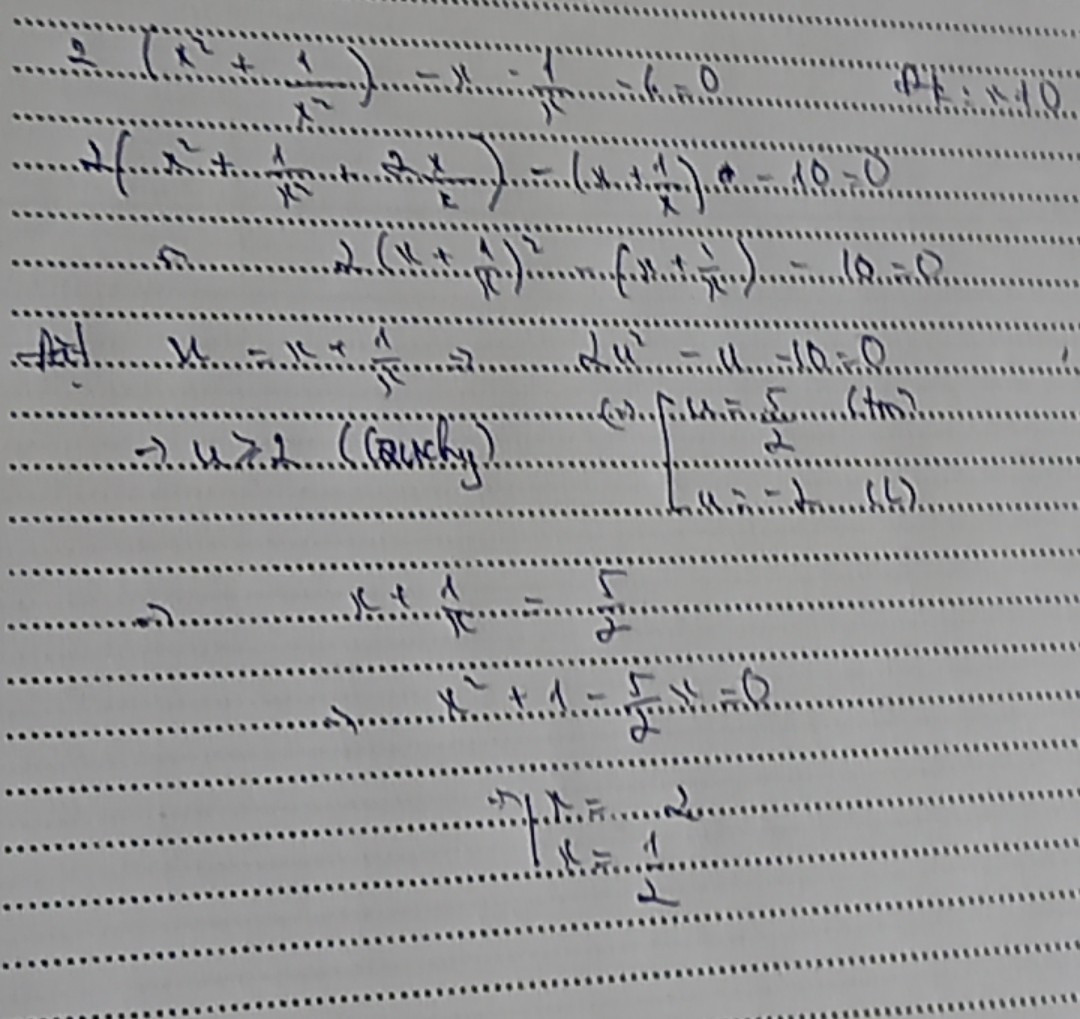 2 (x² + 1/x²) - x - 1/x - 6 = 0 Đk: x ≠ 0
2(x² + 1/x² + 2x/x) - (x + 1/x) - 10 = 0
2(x + 1/x)² - (x + 1/x) - 10 = 0
Đặt u = x + 1/x → 2u² - u - 10 = 0
→ u ≥ 2 (Cauchy) (=) [u = 5/2 (tm)
u = -2 (L)
=> x + 1/x = 5/2
=> x² + 1 - 5/2 x = 0
=> [x = 2
x = 1/2